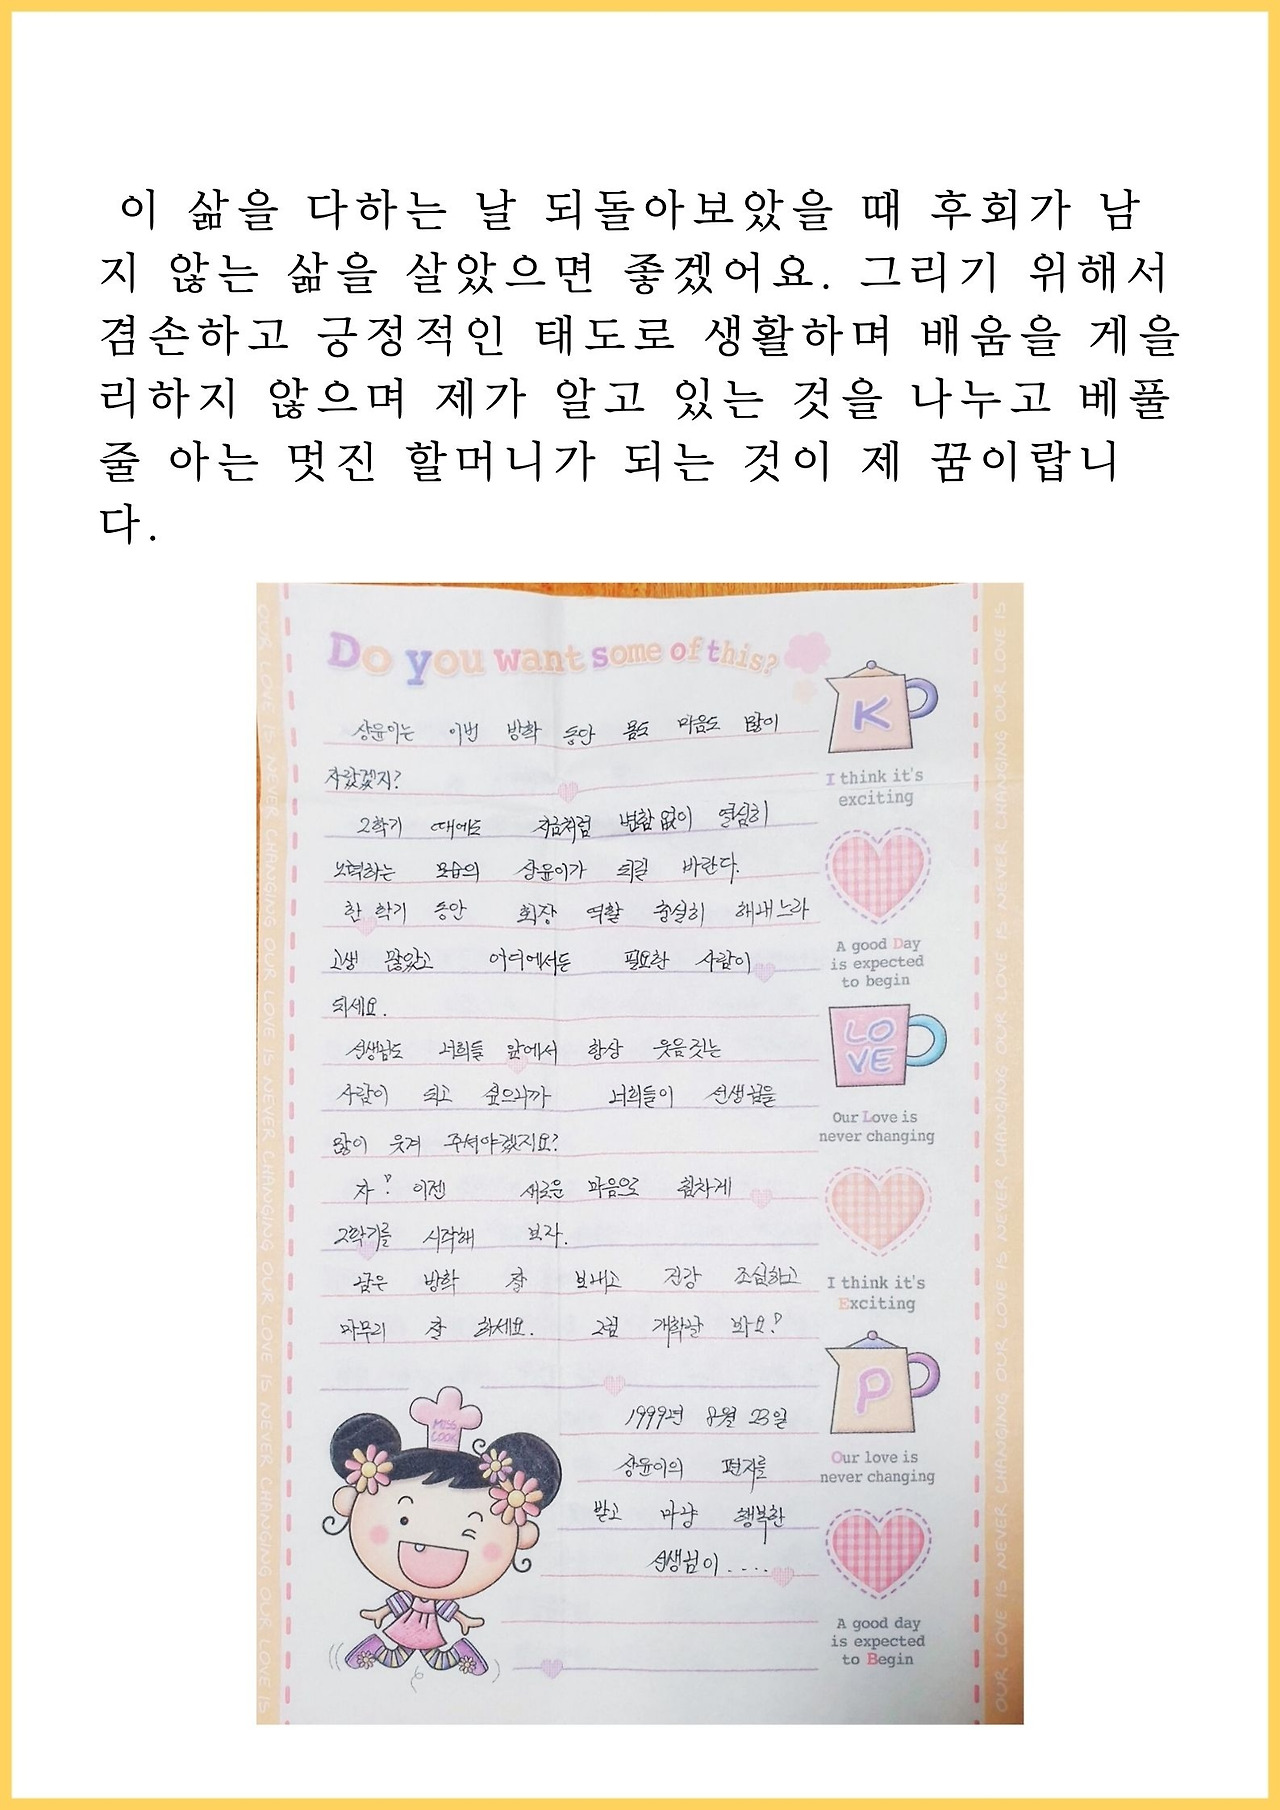 이 삶을 다하는 날 되돌아보았을 때 후회가 남
지 않는 삶을 살았으면 좋겠어요. 그리기 위해서
겸손하고 긍정적인 태도로 생활하며 배움을 게을
리하지 않으며 제가 알고 있는 것을 나누고 베풀
줄 아는 멋진 할머니가 되는 것이 제 꿈이랍니
다.
Do you want some of this?
상윤이는 이번 방학 동안 몸도 마음도 많이
자랐겠지?
2학기 때에도 지금처럼 변함없이 열심히
노력하는 모습의 상윤이가 되길 바란다.
한 학기 동안 회장 역할 충실히 해내느라
고생 많았고 어디에서든 필요한 사람이
되세요.
선생님도 너희들 앞에서 항상 웃음짓는
사람이 되고 싶으니까 너희들이 선생님을
많이 웃겨 주셔야겠지요?
자! 이젠 새로운 마음으로 힘차게
2학기를 시작해 보자.
남은 방학 잘 보내고 건강 조심하고
마무리 잘 하세요. 그럼 개학날 봐요!
1999년 8월 23일
상윤이의 편지를
받고 마냥 행복한
선생님이 ....
K
I think it's
exciting
A good Day
is expected
to begin
LO
VE
Our Love is
never changing
I think it's
Exciting
P
Our love is
never changing
A good day
is expected
to Begin
MISS
COOK
OUR LOVE IS NEVER CHANGING OUR LOVE IS NEVER CHANGING OUR LOVE IS NEVER CHANGING OUR LOVE IS NEVER CHANGING OUR LOVE IS
OUR LOVE IS NEVER CHANGING OUR LOVE IS NEVER CHANGING OUR LOVE IS NEVER CHANGING OUR LOVE IS NEVER CHANGING OUR LOVE IS